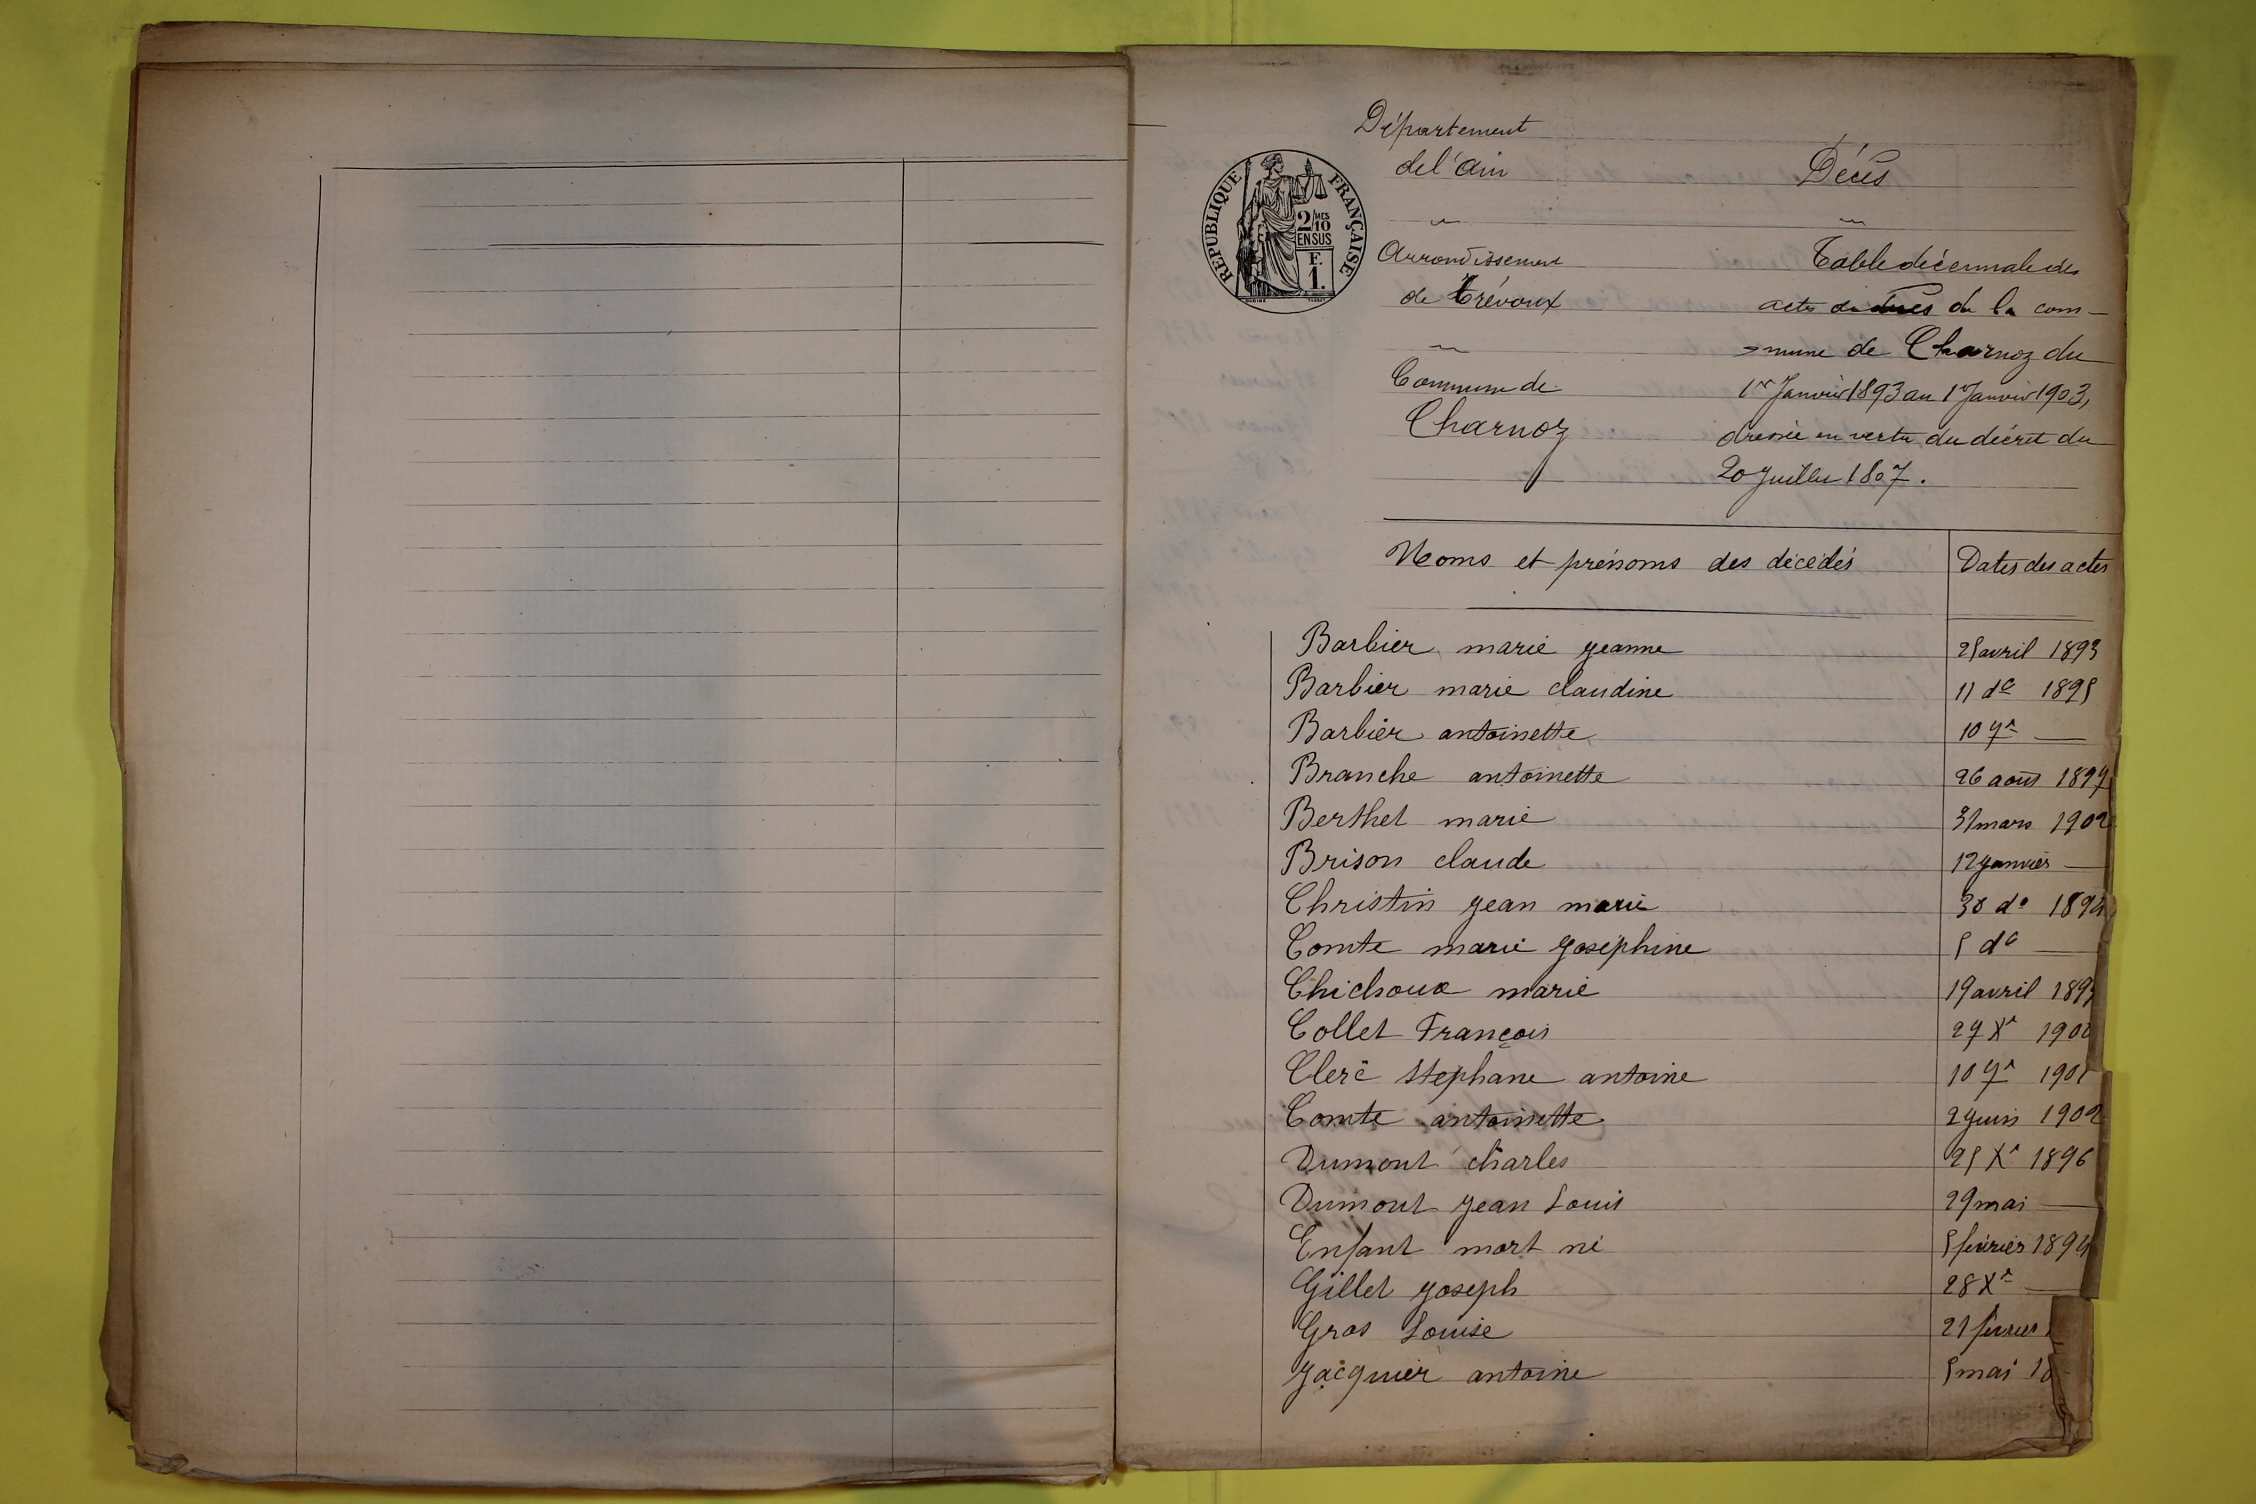 Département
de l'ain
Arrondissement
de Trévoux
Commune de
Charnoz
RÉPUBLIQUE FRANÇAISE
2/10 MES
EN SUS
F.
1.
Décès
Table décennale des
actes de décès de la com-
-mune de Charnoz du
1er Janvier 1893 au 1er Janvier 1903,
dressée en vertu du décret du
20 Juillet 1807.
Noms et prénoms des décédés Dates des actes
Barbier marie jeanne 25 avril 1893
Barbier marie claudine 11 do 1895
Barbier antoinette 10 7re —
Branche antoinette 26 août 1897
Berthet marie 31 mars 1902
Brison claude 12 janvier —
Christin jean marie 30 do 1894
Comte marie josephine 5 do —
Chichoux marie 19 avril 189
Collet François 27 Xre 190
Clerc Stephane antoine 10 7re 1901
Comte antoinette 2 juin 1902
Dumont charles 25 Xre 1896
Dumont jean Louis 29 mai —
Enfant mort né 5 février 1894
Gillet joseph 28 Xre —
Gros Louise 21 février
Jacquier antoine 5 mai 18